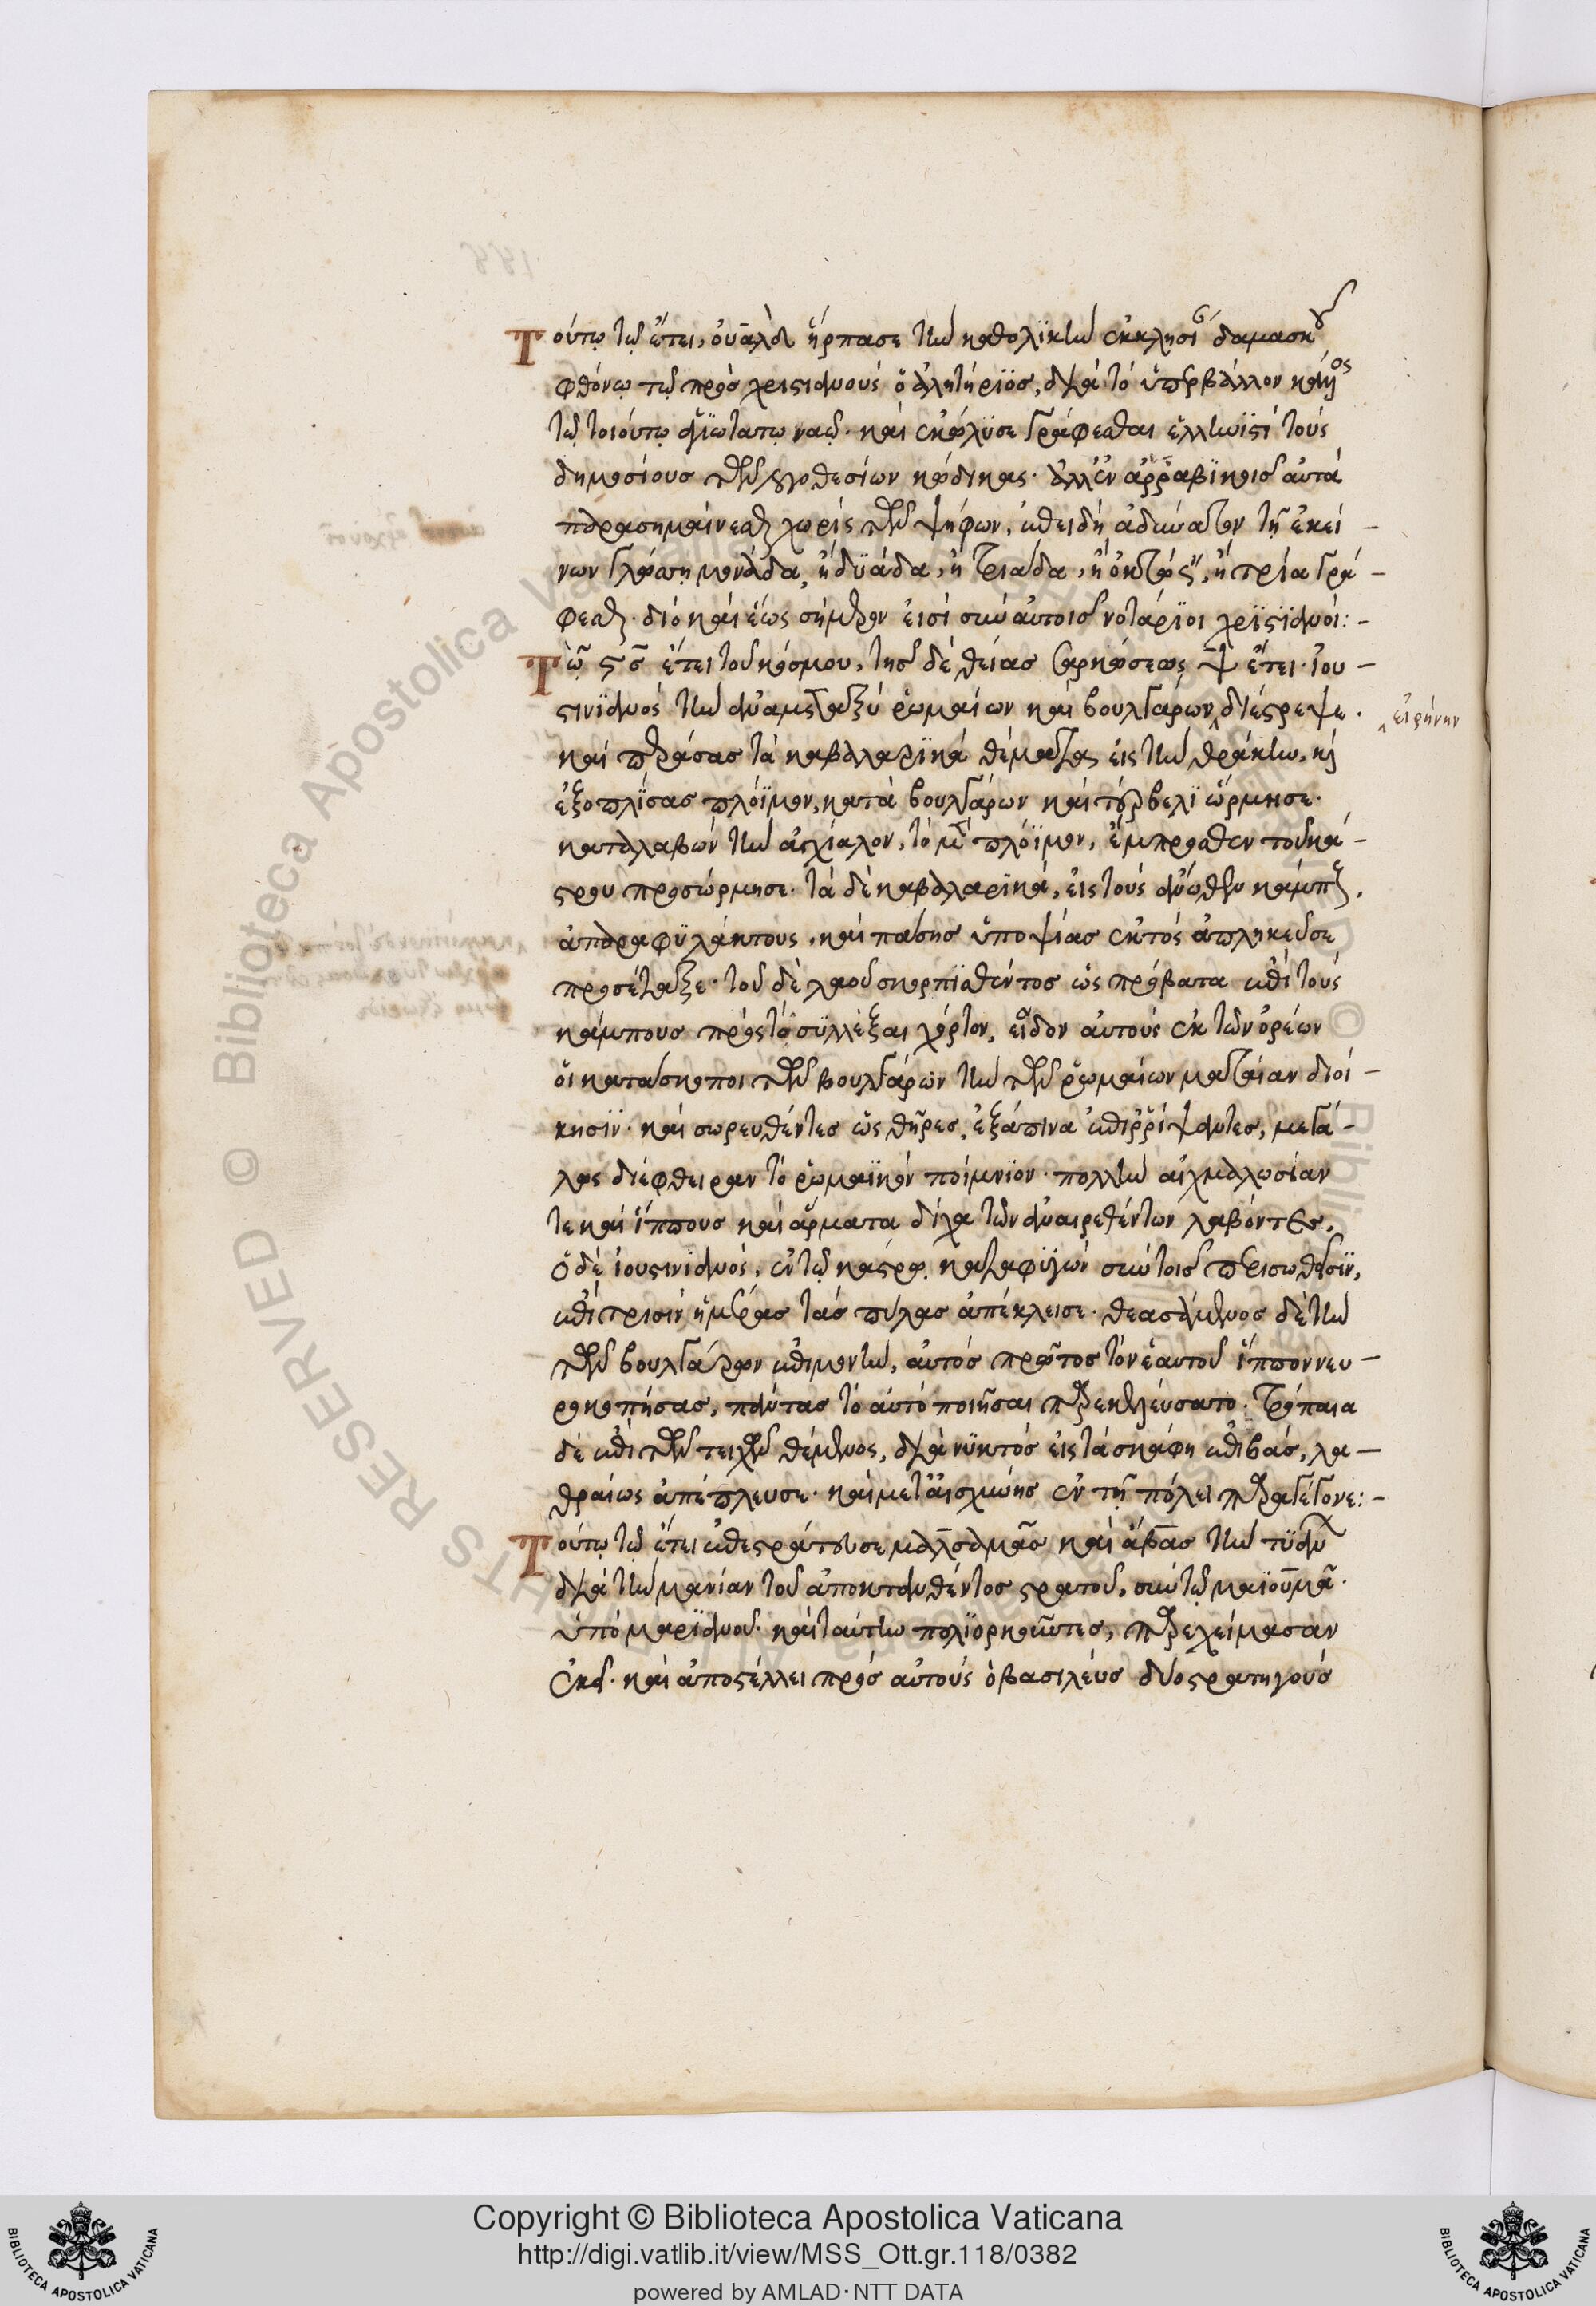 Τούτῳ τῷ ἔτει, οὐαλὸδ ἥρπασε τὴν καθολϊκὴν ἐκκλησί δαμασκοῦ
φθόνῳ τῷ πρὸς χριστιανοὺς ὁ ἀλητήριος, διὰ τὸ ὑπερβάλλον κάλλος
τῷ τοιούτῳ ἁγιωτάτῳ ναῷ. καὶ ἐκώλυσε γράφεσθαι ἑλληνϊστὶ τοὺς
δημοσίους τῶν λογοθεσίων κώδικας. ἀλλ' ἐν ἀρραβϊκοῖς αὐτὰ
παρασημαίνεσθαι χωρὶς τῶν ψήφων, ἐπειδὴ ἀδύνατον τῇ ἐκεί-
νων γλώσσῃ μονάδα, ἢ δϋάδα, ἢ τριάδα, ἢ ὀκτὼς", ἢ τρία γρά-
φεσθαι. διὸ καὶ ἕως σήμερον εἰσὶ σὺν αὐτοῖς νοτάριοι χρϊστϊανοί: -
Τῷ ςσ ἔτει τοῦ κόσμου, τῆς δὲ θείας σαρκώσεως ψ ἔτει. Ἰου-
στινϊανὸς τὴν ἀναμεταξὺ ῥωμαίων καὶ βουλγάρων διέστρεψε.
εἰρήνην
καὶ περάσας τὰ καβαλλαρϊκὰ θέματα εἰς τὴν θράκην, καὶ
ἐξοπλίσας πλόϊμον, κατὰ βουλγάρων καὶ τούρβελϊ ὥρμησε.
καταλαβὼν τὴν ἀγχίαλον, τὸ μὲν πλόϊμον, ἔμπροσθεν τοῦ κά-
στρου προσώρμησε. τὰ δὲ καβαλαρϊκὰ, εἰς τοὺς ἄνωθεν κάμπους,
ἀπαραφϋλάκτους, καὶ πάσης ὑποψίας ἐκτὸς ἀπληκεῦσε
προσέταξε. τοῦ δὲ λαοῦ σκορπϊσθέντος ὡς πρόβατα ἐπὶ τοὺς
κάμπους πρὸς τὸ συλλέξαι χόρτον, εἶδον αὐτοὺς ἐκ τῶν ὀρέων
οἱ κατάσκοποι τῶν βουλγάρων τὴν τῶν ῥωμαίων ματαίαν διοί-
κησϊν. καὶ σωρευθέντες ὡς θῆρες, ἐξάπινα ἐπιρρίψαντες, μεγά-
λως διέφθειραν τὸ ῥωμαϊκὸν ποίμνϊον. πολλὴν αἰχμαλωσίαν
τε καὶ ἵππους καὶ ἅρματα δίχα τῶν ἀναιρεθέντων λαβόντες.
Ὁ δὲ ἰουστινϊανὸς, ἐν τῷ κάστρῳ καταφϋγὼν σὺν τοῖς περισωθεῖσϊν,
ἐπὶ τρισὶν ἡμέρας τὰς πύλας ἀπέκλεισε. θεασάμενος δὲ τὴν
τῶν βουλγάρων ἐπιμονὴν, αὐτὸς πρῶτος τὸν ἑαυτοῦ ἵππον νευ-
ροκοπήσας, πάντας τὸ αὐτὸ ποιῆσαι παρεκελεύσατο. Τρόπαια
δὲ ἐπὶ τῶν τειχῶν θέμενος, διὰ νϋκτὸς εἰς τὰ σκάφη ἐπιβὰς, λα-
θραίως ἀπέπλευσε. καὶ μετ' αἰσχύνης ἐν τῇ πόλει παραγέγονε: -
Τούτῳ τῷ ἔτει ἐπεστράτευσε μαλσαλμᾶς καὶ ἄβας τὴν τϋαν
διὰ τὴν μανίαν τοῦ ἀποκτανθέντος στρατοῦ, σὺν τῷ μαϊουμᾶ.
ὑπὸ μαρϊανοῦ. καὶ ταύτην πολϊορκοῦντες, παρεχείμασαν
ἐκεῖ. καὶ ἀποστέλλει πρὸς αὐτοὺς ὁ βασιλεὺς δύο στρατηγοὺς
Copyright © Biblioteca Apostolica Vaticana
http://digi.vatlib.it/view/MSS_Ott.gr.118/0382
powered by AMLAD·NTT DATA
BIBLIOTECA APOSTOLICA VATICANA
BIBLIOTECA APOSTOLICA VATICANA